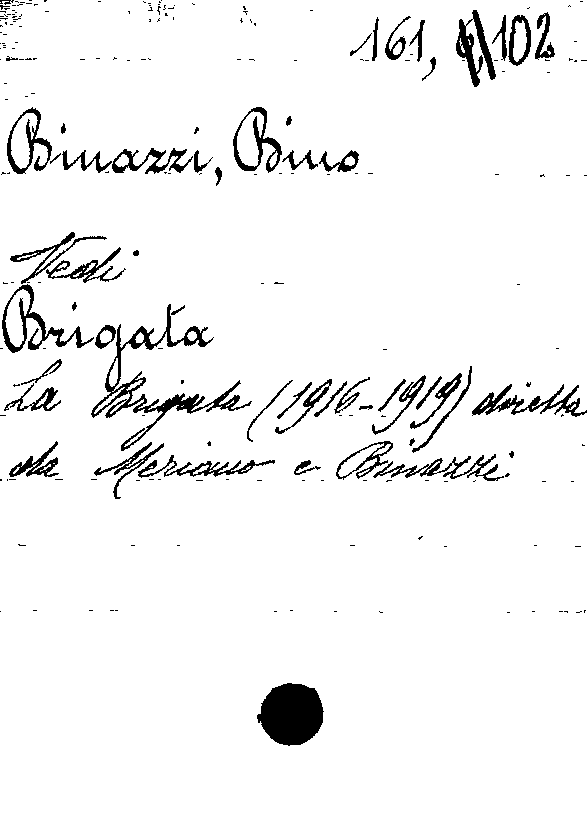 161, 102
Binazzi, Bino
Vedi
Brigata
La Brigata (1916-1919) diretta
da Meriano e Binazzi